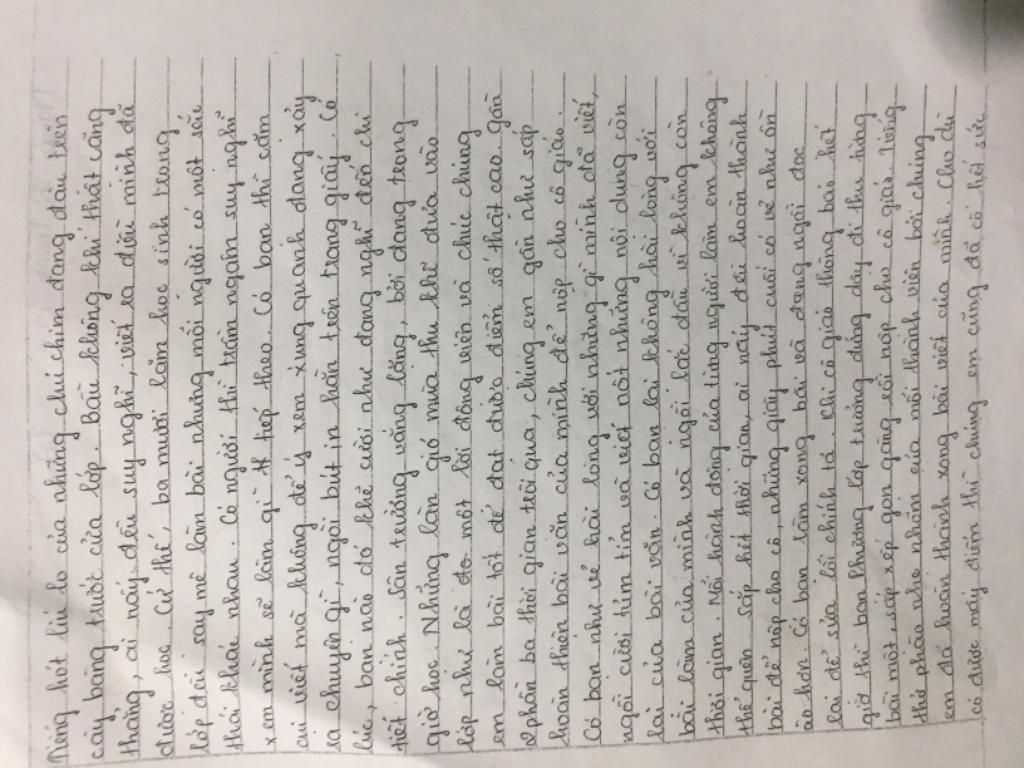 Tiếng hót líu lo của những chú chim đang đậu trên
cây bàng trước cửa lớp. Bầu không khí thật căng
thẳng, ai nấy đều suy nghĩ, viết ra điều mình đã
được học. Cứ thế, ba mươi lăm học sinh trong
lớp đều say mê làm bài nhưng mỗi người có một sắc
thái khác nhau. Có người thì trầm ngâm suy nghĩ
xem mình sẽ làm gì tiếp theo. Có bạn thì cắm
cúi viết mà không để ý xem xung quanh đang xảy
ra chuyện gì, ngòi bút in hằn trên trang giấy. Có
lúc, bạn nào đó khẽ cười như đang nghĩ đến chi
tiết chính. Sân trường vắng lặng, bởi đang trong
giờ học. Những làn gió mùa thu khẽ đưa vào
lớp như là một lời động viên và chúc chúng
em làm bài tốt để đạt được điểm số thật cao. Gần
2 phần ba thời gian trôi qua, chúng em gần như sắp
hoàn thiện bài văn của mình để nộp cho cô giáo.
Có bạn như vẻ hài lòng với những gì mình đã viết,
ngồi cười tủm tỉm và viết nốt những nội dung còn
lại của bài văn. Có bạn lại không hài lòng với
bài làm của mình và ngồi lắc đầu vì không còn
thời gian. Mỗi hành động của từng người làm em không
thể quên. Sắp hết thời gian, ai nấy đều hoàn thành
bài để nộp cho cô, những giây phút cuối có vẻ như ồn
ào hơn. Có bạn làm xong bài và đang ngồi đọc
lại để sửa lỗi chính tả. Khi cô giáo thông báo hết
giờ thì bạn Phương lớp trưởng đứng dậy đi thu từng
bài một, sắp xếp gọn gàng rồi nộp cho cô giáo. Tiếng
thở phào nhẹ nhõm của mỗi thành viên bởi chúng
em đã hoàn thành xong bài viết của mình. Cho dù
có được mấy điểm thì chúng em cũng đã cố hết sức